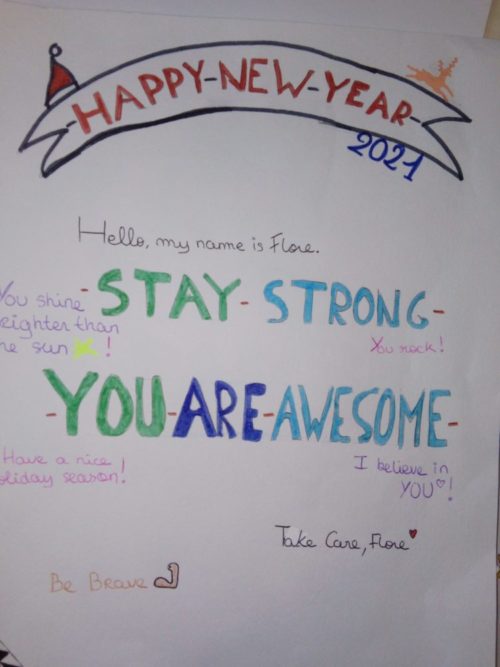 HAPPY-NEW-YEAR
2021
Hello, my name is Flore.
-STAY-STRONG-
You shine
eighter than
he sun !
You rock!
-YOU-ARE-AWESOME-
Have a nice
oliday season!
I believe in
YOU♡!
Take Care, Flore♥
Be Brave